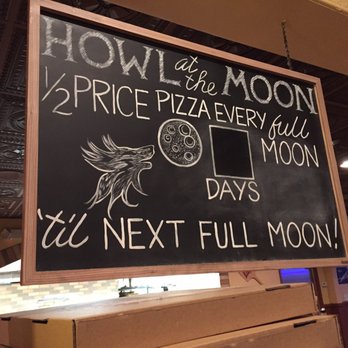 HOWL at the MOON
1/2 PRICE PIZZA EVERY full
MOON
DAYS
'til NEXT FULL MOON!